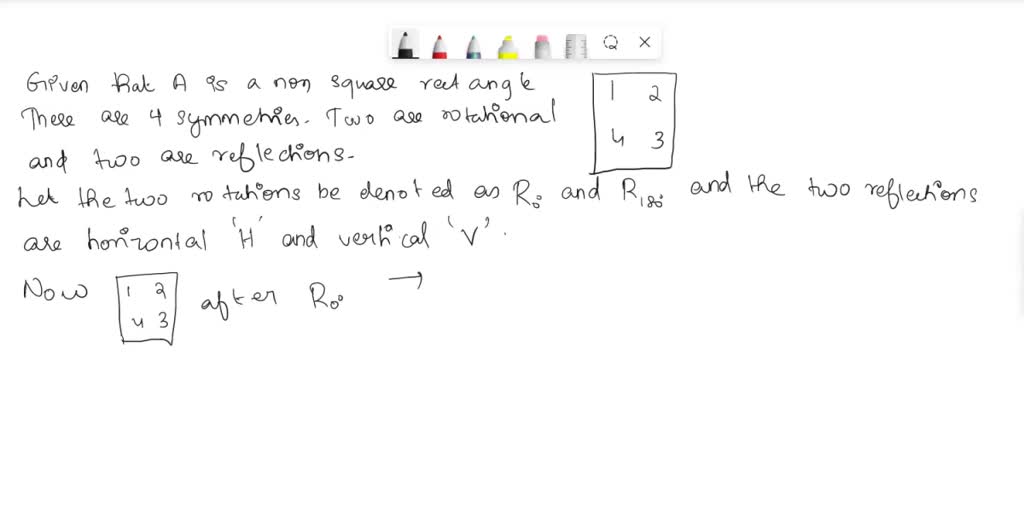 Given that A is a non square rectangle
1 2
There are 4 symmetries. Two are rotational
4 3
and two are reflections.
Let the two rotations be denoted as R₀° and R₁₈₀° and the two reflections
are horizontal 'H' and vertical 'V'.
Now 1 2 after R₀° →
4 3